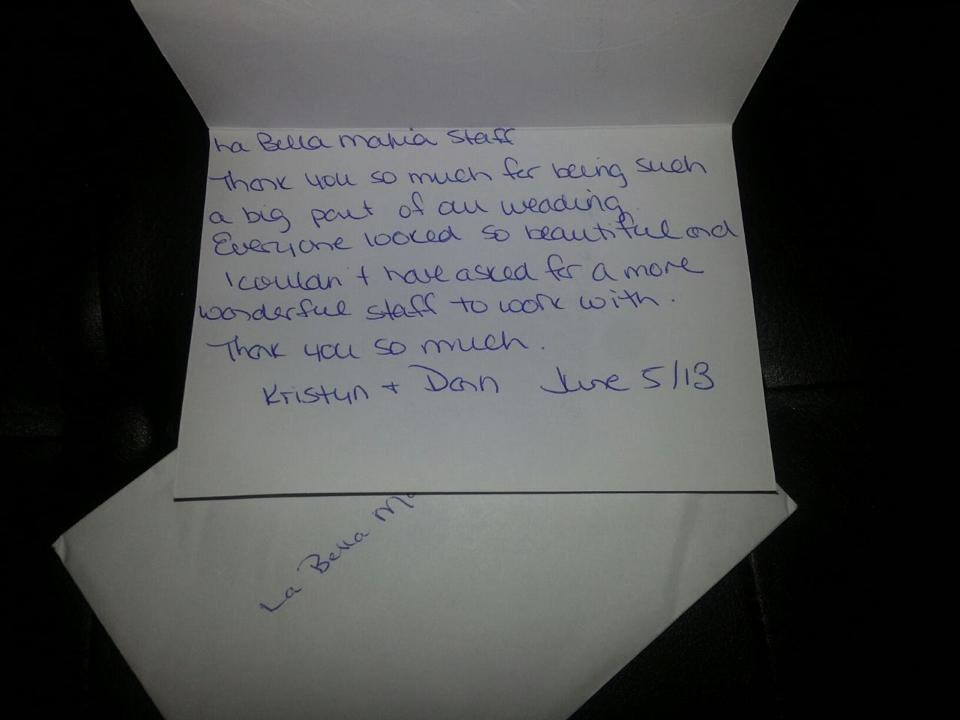 La Bella Mafia Staff
Thank you so much for being such
a big part of our wedding.
Everyone looked so beautiful and
I couldn't have asked for a more
wonderful staff to work with.
Thank you so much.
Kristyn + Dan June 5/13
La Bella Ma